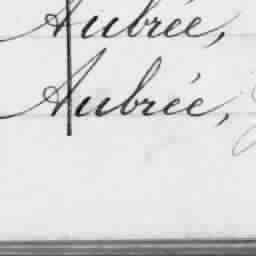 Aubrée,
Aubrée,